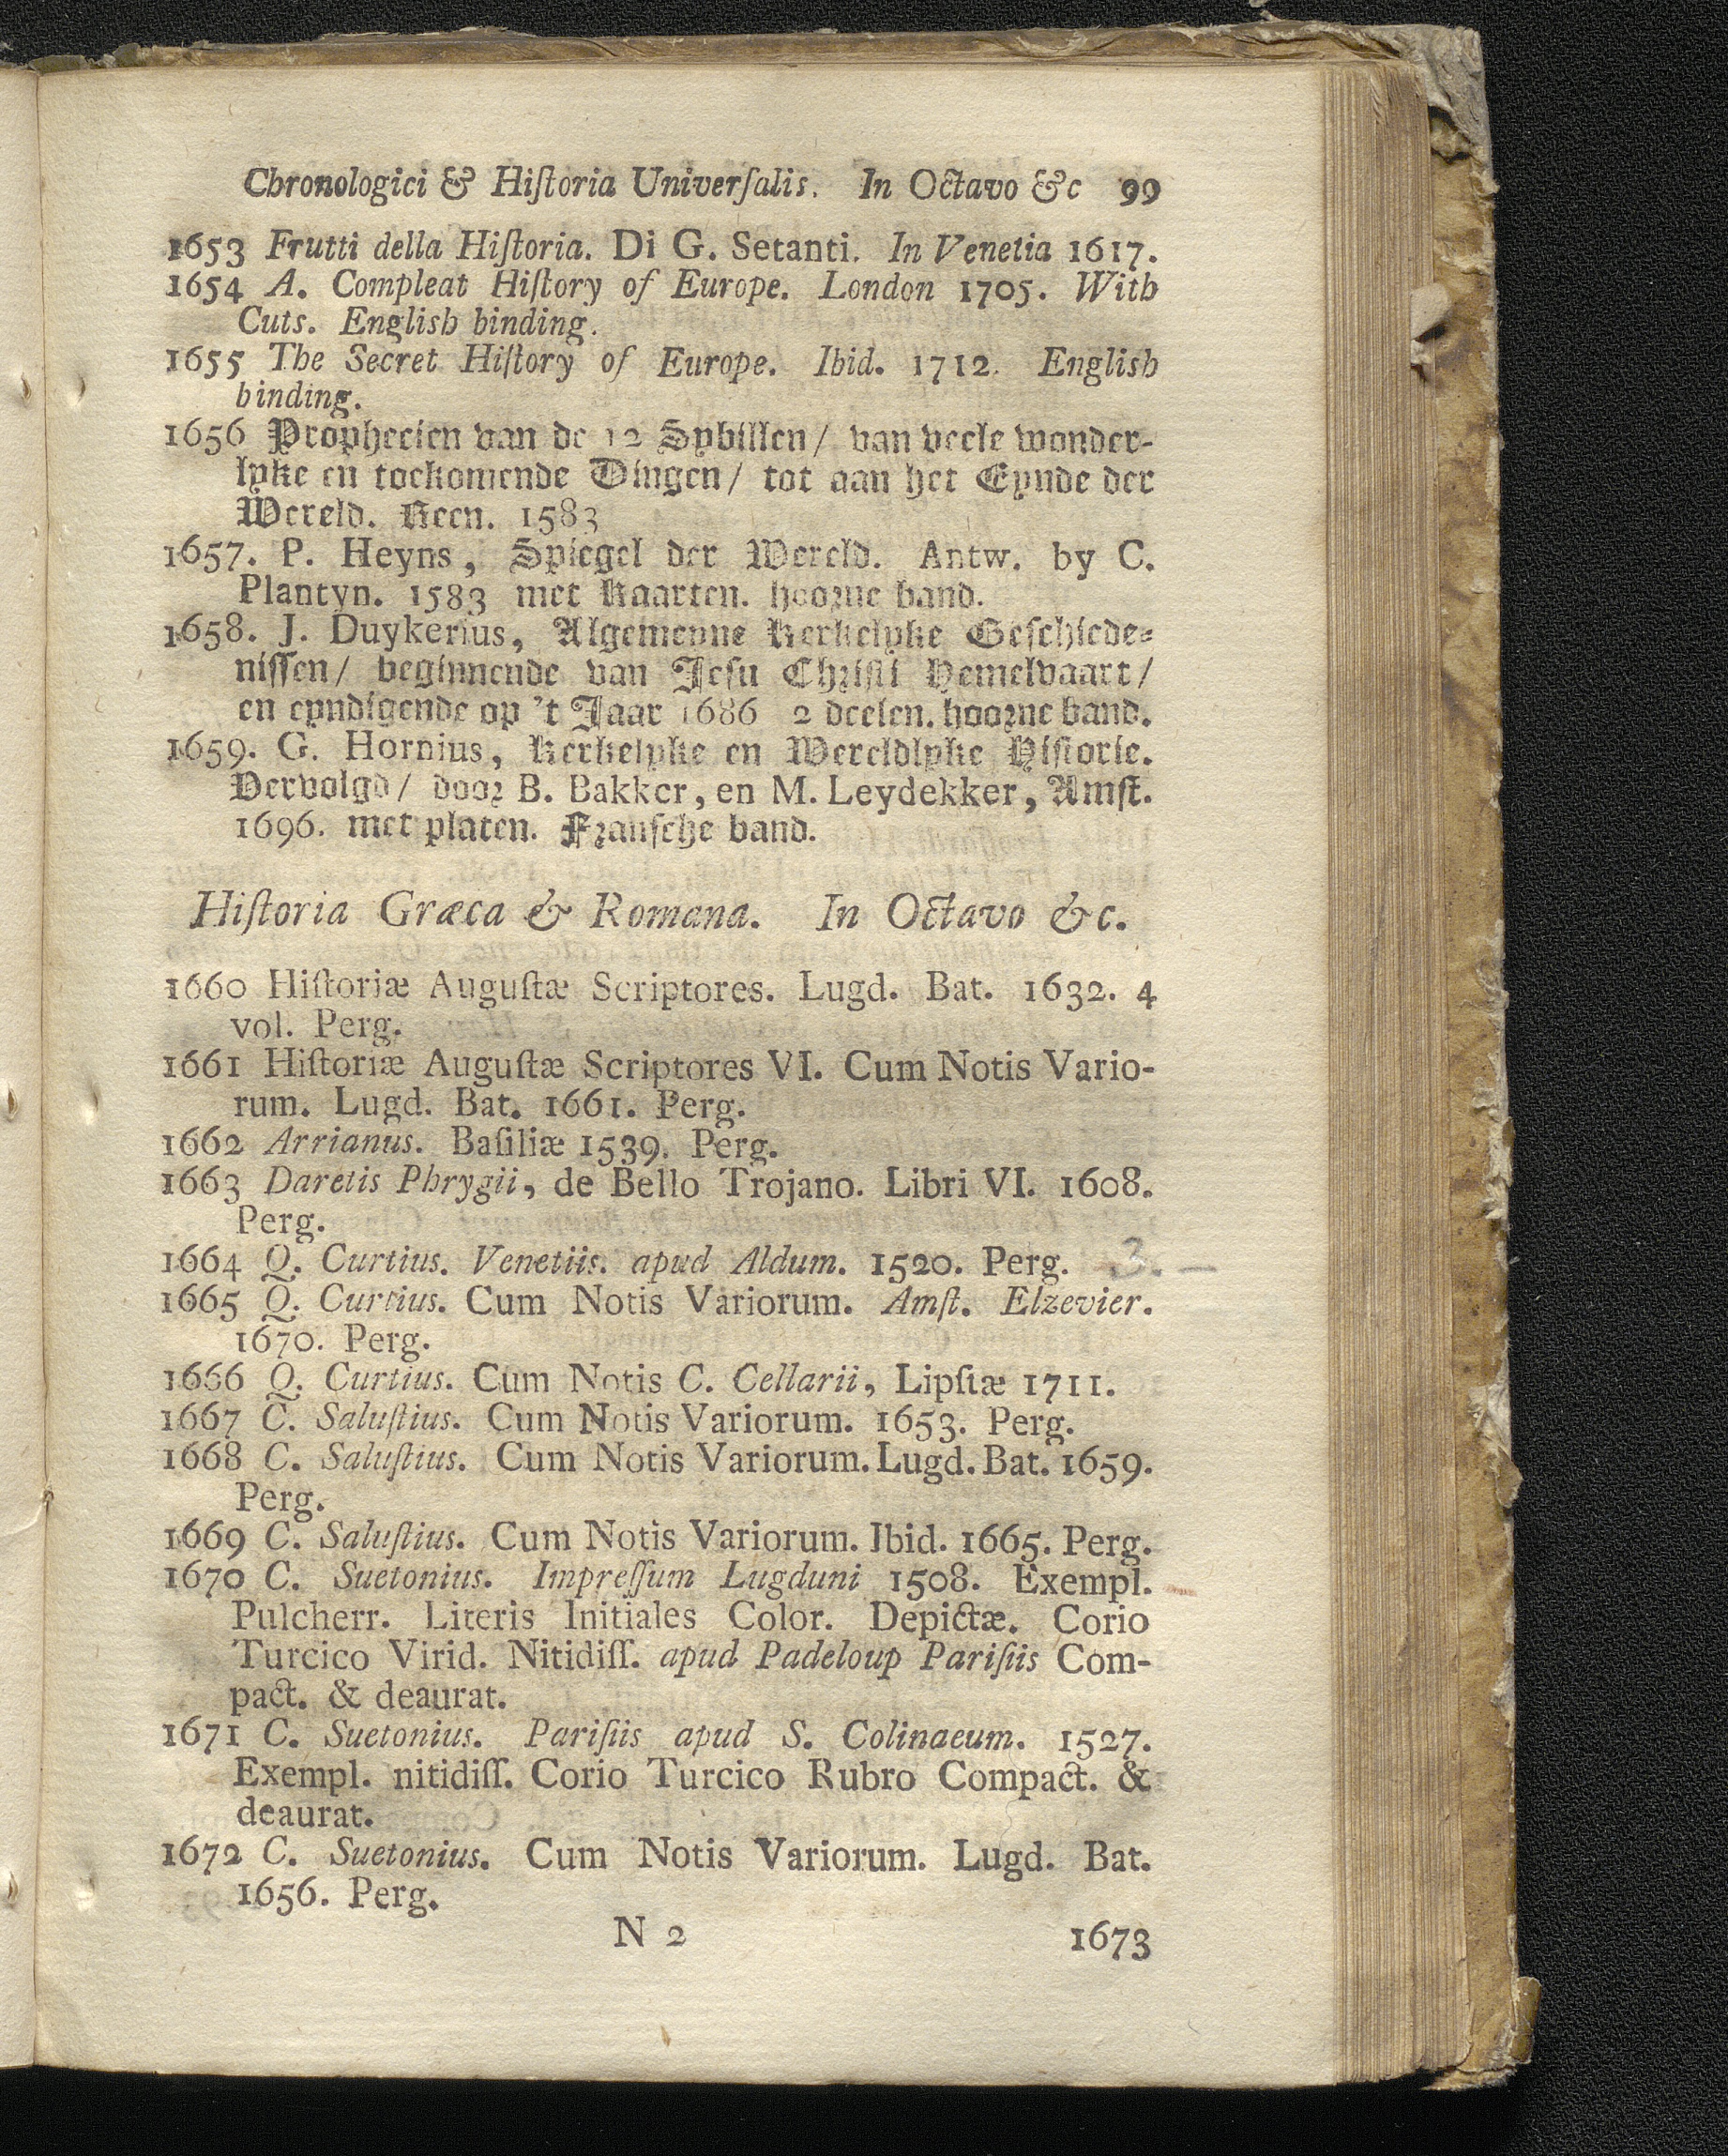 Chronologici & Hiſtoria Univerſalis. In Octavo &c 99
1653 Frutti della Hiſtoria. Di G. Setanti. In Venetia 1617.
1654 A. Compleat Hiſtory of Europe. London 1705. With
Cuts. English binding.
1655 The Secret Hiſtory of Europe. Ibid. 1712. English
binding.
1656 Propheeien van de 12 Sybillen / van veele wonder-
lyke en toekomende Dingen / tot aan het Eynde der
Wereld. Keen. 1583
1657. P. Heyns, Spiegel der Wereld. Antw. by C.
Plantyn. 1583 met Kaarten. hoorne band.
1658. J. Duykerius, Algemeyne Kerkelyke Geſchiede-
niſſen / beginnende van Jeſu Chriſti Hemelvaart /
en eyndigende op 't Jaar 1686 2 deelen. hoorne band.
1659. G. Hornius, Kerkelyke en Wereldlyke Hiſtorie.
Vervolgd / door B. Bakker, en M. Leydekker, Amſt.
1696. met platen. Franſche band.
Hiſtoria Græca & Romana. In Octavo &c.
1660 Hiſtoriæ Auguſtæ Scriptores. Lugd. Bat. 1632. 4
vol. Perg.
1661 Hiſtoriæ Auguſtæ Scriptores VI. Cum Notis Vario-
rum. Lugd. Bat. 1661. Perg.
1662 Arrianus. Baſiliæ 1539. Perg.
1663 Daretis Phrygii, de Bello Trojano. Libri VI. 1608.
Perg.
1664 Q. Curtius. Venetiis. apud Aldum. 1520. Perg. 3. –
1665 Q. Curtius. Cum Notis Variorum. Amſt. Elzevier.
1670. Perg.
1666 Q. Curtius. Cum Notis C. Cellarii, Lipſiæ 1711.
1667 C. Saluſtius. Cum Notis Variorum. 1653. Perg.
1668 C. Saluſtius. Cum Notis Variorum. Lugd. Bat. 1659.
Perg.
1669 C. Saluſtius. Cum Notis Variorum. Ibid. 1665. Perg.
1670 C. Suetonius. Impreſſum Lugduni 1508. Exempl.
Pulcherr. Literis Initiales Color. Depictæ. Corio
Turcico Virid. Nitidiſſ. apud Padeloup Pariſiis Com-
pact. & deaurat.
1671 C. Suetonius. Pariſiis apud S. Colinaeum. 1527.
Exempl. nitidiſſ. Corio Turcico Rubro Compact. &
deaurat.
1672 C. Suetonius. Cum Notis Variorum. Lugd. Bat.
1656. Perg.
N 2 1673